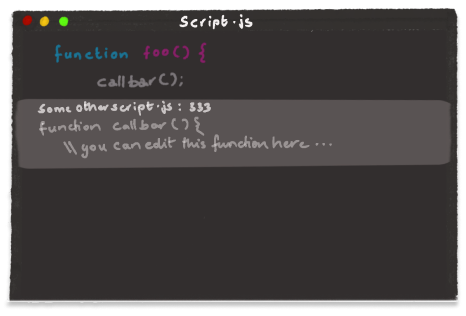 Script.js
function foo() {
callbar();
someotherscript.js : 333
function callbar() {
\\ you can edit this function here ...